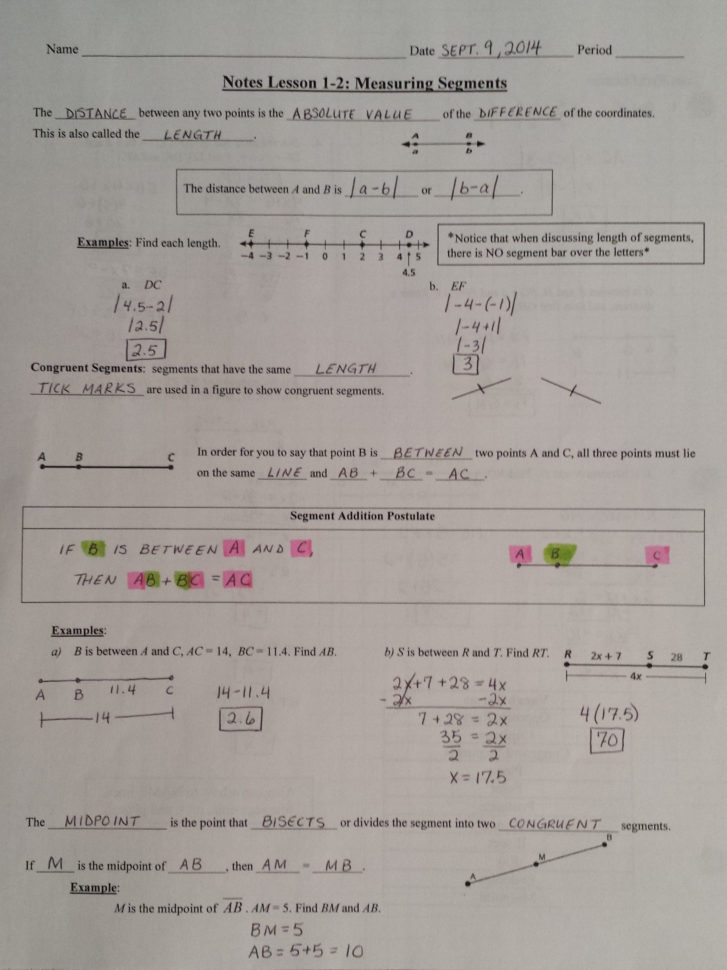 Name ____ Date SEPT. 9, 2014 Period ____
Notes Lesson 1-2: Measuring Segments
The DISTANCE between any two points is the ABSOLUTE VALUE of the DIFFERENCE of the coordinates.
This is also called the LENGTH.
A B
a b
The distance between A and B is |a-b| or |b-a|.
Examples: Find each length.
E F C D
-4 -3 -2 -1 0 1 2 3 4 5
4.5
*Notice that when discussing length of segments,
there is NO segment bar over the letters*
a. DC
|4.5-2|
|2.5|
2.5
b. EF
|-4-(-1)|
|-4+1|
|-3|
3
Congruent Segments: segments that have the same LENGTH.
TICK MARKS are used in a figure to show congruent segments.
A B C
In order for you to say that point B is BETWEEN two points A and C, all three points must lie
on the same LINE and AB + BC = AC.
Segment Addition Postulate
IF B IS BETWEEN A AND C,
THEN AB + BC = AC
A B C
Examples:
a) B is between A and C, AC = 14, BC = 11.4. Find AB.
A B 11.4 C
14
14-11.4
2.6
b) S is between R and T. Find RT.
R 2x + 7 S 28 T
4x
2x+7+28 = 4x
-2x -2x
7+28 = 2x
35 = 2x
2 2
x = 17.5
4(17.5)
70
The MIDPOINT is the point that BISECTS or divides the segment into two CONGRUENT segments.
If M is the midpoint of AB, then AM = MB.
A M B
Example:
M is the midpoint of AB. AM = 5. Find BM and AB.
BM = 5
AB = 5+5 = 10